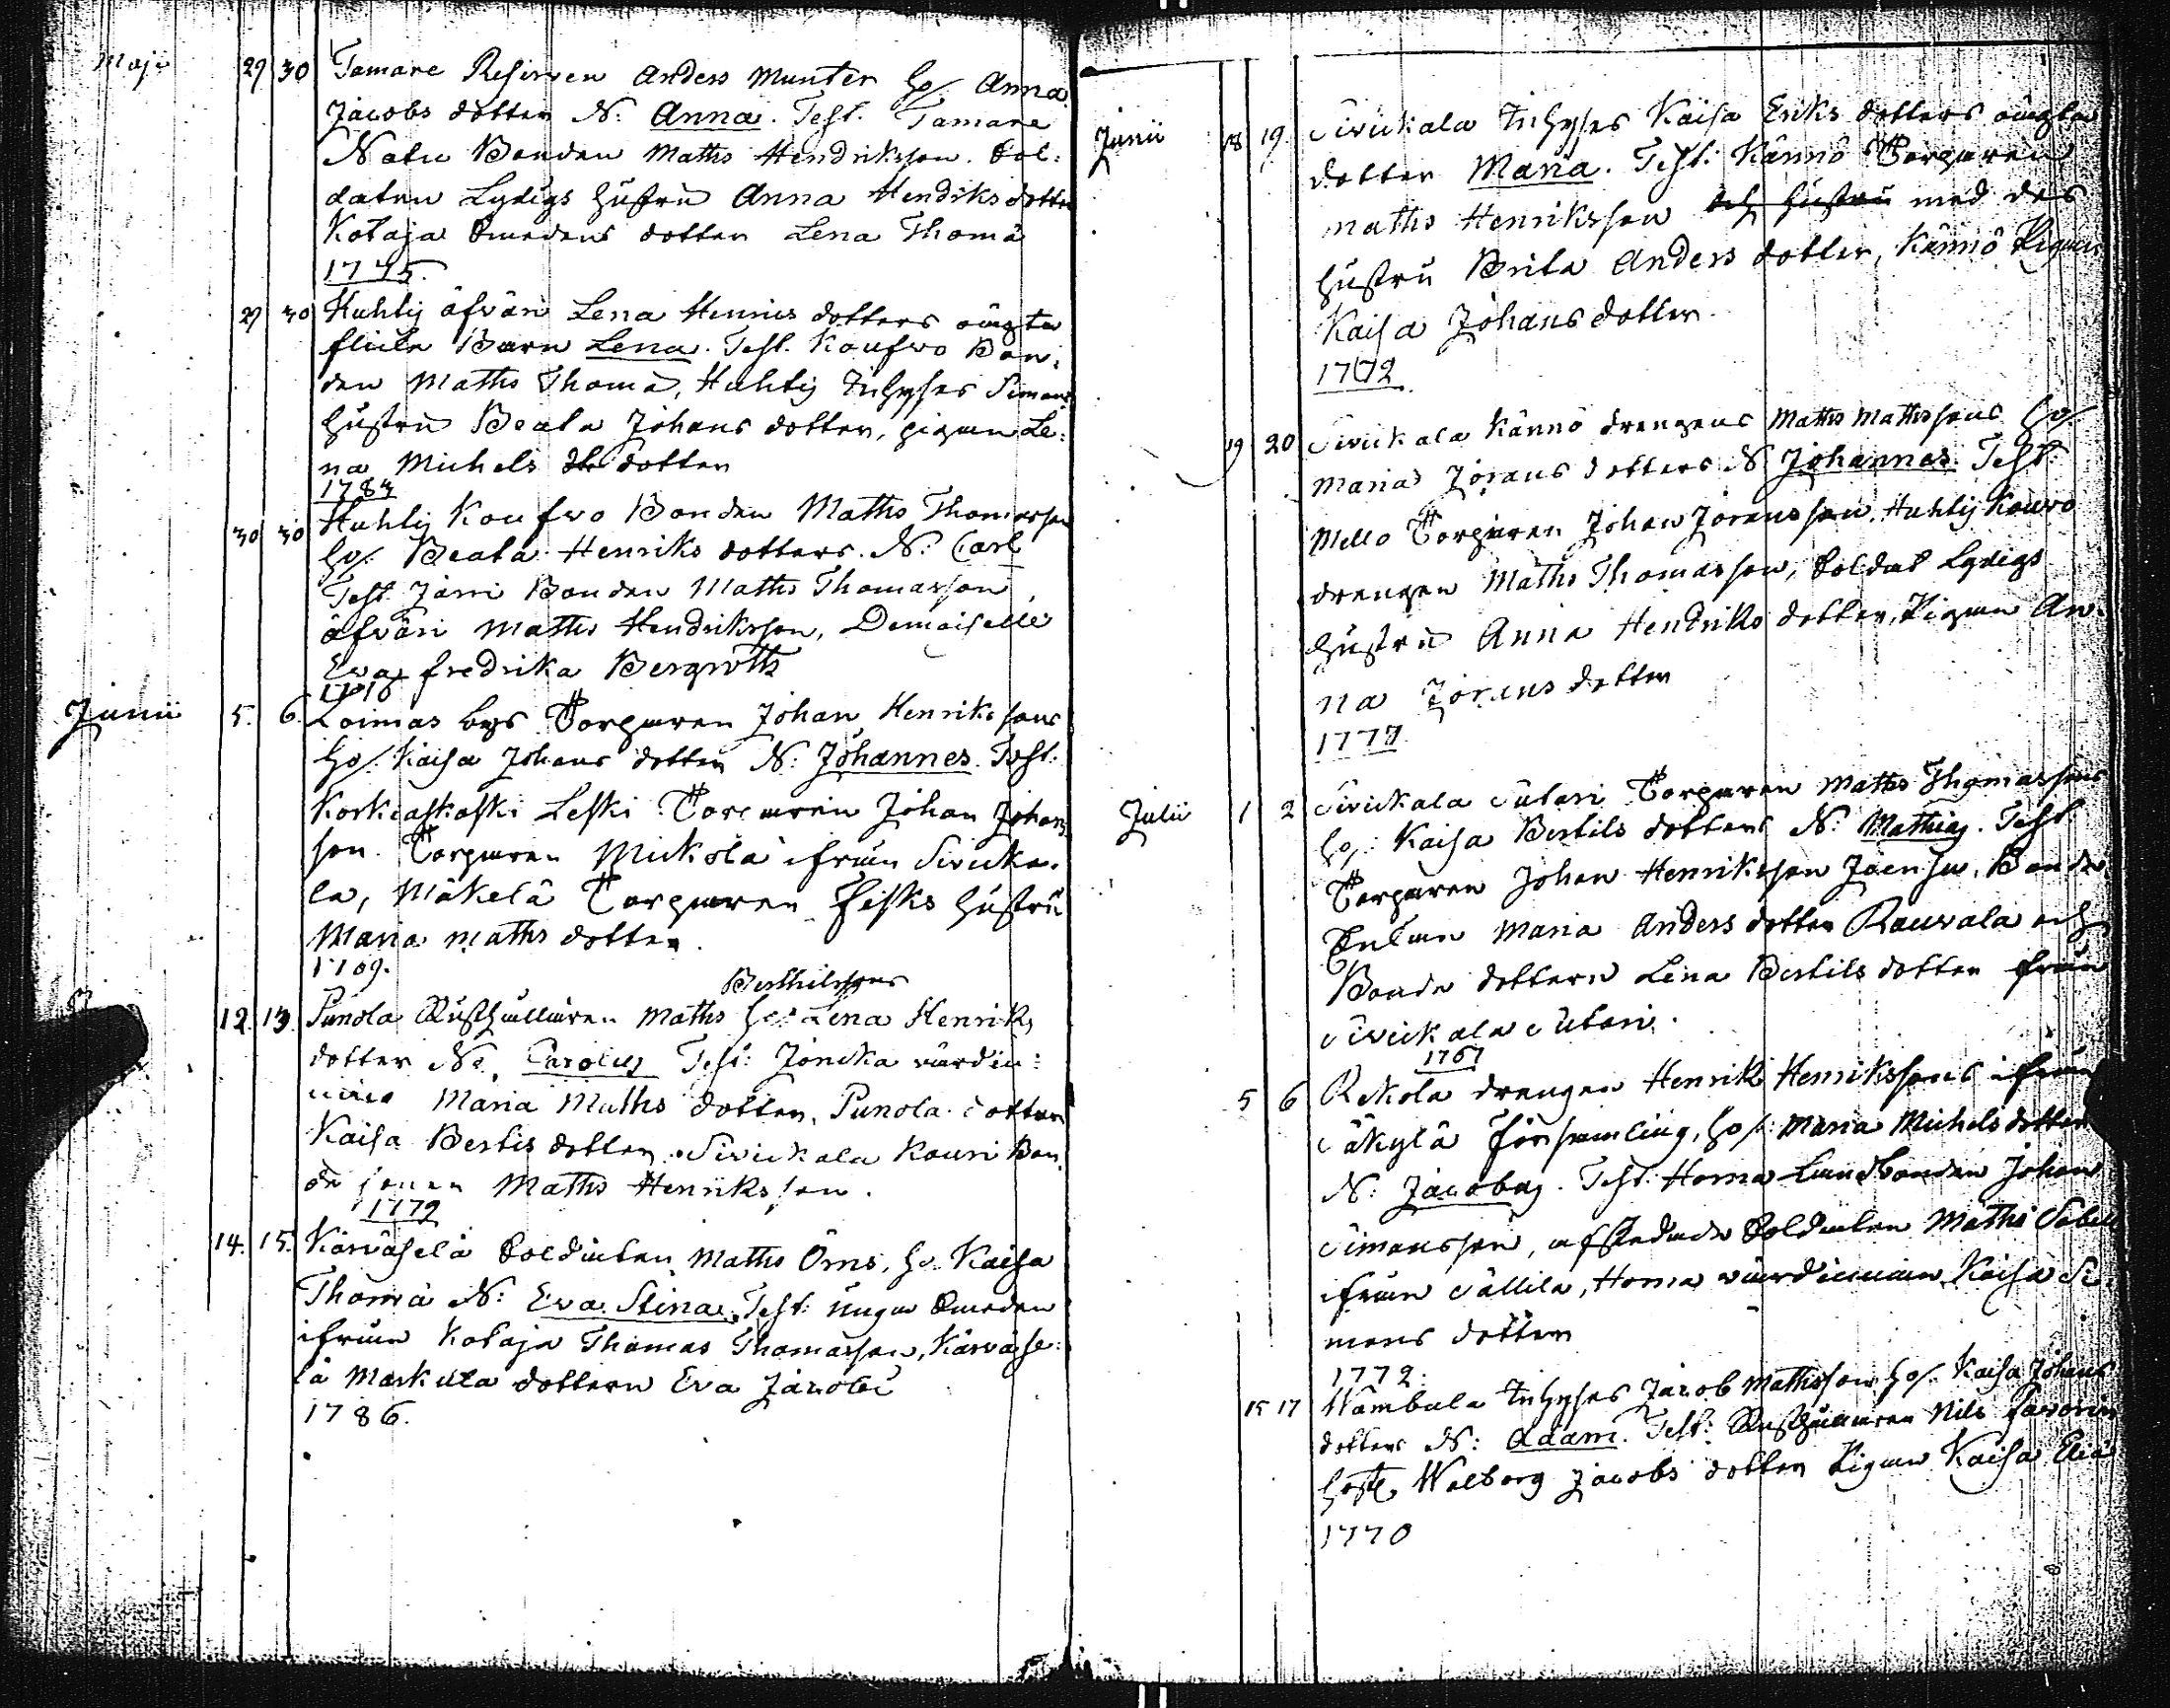 Maji 29 30 Tamare Reserven Anders Munter h/ Anna
Jacobs dotter N: Anna. Test. Tamare
Natu Bonden Maths Hendriksson. Sol:
daten Lydigs hustru Anna Hendriks dotter
Kotaja Smedens dotter Lena Thomæ
1775.
29 30 Huhty äfväri Lena Henrics dotters oägta
flicke Barn Lena. Test. Koufwo Bon:
den Maths Thomæ, Huhtij Inhyses Simons
hustru Beata Johans dotter, pigan Le:
na Michels dotter
1784
30 30 Huhtij Koufwo Bonden Maths Thomasson
h/. Beata Henriks dotters. N: Carl
Test. Järvi Bonden Maths Thomasson,
äfväri Maths Hendriksson, Demoiselle
Eva Fredrika Bergroth
Junii 5. 6. Loimas bys Torparen Johan Henrikssons
h/. Kaisa Johans dotter N: Johannes. Test:
Korkiaskoski Leski Torparen Johan Johans
son. Torparen Mickola ifrån Sivicka:
la, Mäkelä Torparen Fisks hustru
Maria Maths dotter.
1769.
Berthilssons
12. 13. Punola Rusthållaren Maths h/ Lena Henriks
dotter N: Carolus Test: Joncka värdin:
nan Maria Maths dotter, Punola dotter
Kaisa Bertils dotter. Sivickala Kouri Bon
de sonen Maths Henriksson.
1772
14. 15. Karväselä Soldaten Maths Örns, h/. Kaisa
Thomæ N: Eva Stina. Test: unga Smeden
ifrån Kotaja Thomas Thomasson, Karväse:
lä Markula dottern Eva Jacobi
1786.
Junii 18 19. Sivickala Inhyses Kaisa Eriks dotters oägta
dotter Maria. Test: Kännö Torparen
Maths Henriksson och hustru med des
hustru Brita Anders dotter, Kännö Pigan
Kaisa Johans dotter.
1772.
19 20 Sivickala Kännö drengens Maths Mathssons h/.
Maria Jörans dotters N. Johannes. Test:
Mello Torparen Johan Jöransson, Huhtij Kouvo
drengen Maths Thomasson, Soldat Lydigs
hustru Anna Hendriks dotter, Pigan An
na Jörans dotter
1777.
Julii 1 2 Sivickala Sutari Torparen Maths Thomassons
h/. Kaisa Bertils dotters N: Mathias. Test:
Torparen Johan Henriksson Joensu, Bonde
Enkan Maria Anders dotter Rauvala och
Bonde dottern Lena Bertils dotter från
Sivickala Sutari.
1767
5 6 Rekola drengen Henrik Henrikssons ifrån
Säkylä Församling, h/. Maria Michels dotter
N: Jacobus. Test: Horna Landbonden Johan
Simonsson, afskedade Soldaten Maths Sabell
ifrån Sällilä, Horna värdinnan Kaisa Si:
mons dotter
1772.
15 17 Wambula Inhyses Jacob Mathsson h/. Kaisa Johans
dotters N: Adam. Test: Rusthållaren Nils Favorin
Walborg Jacobs dotter Pigan Kaisa Eliæ
1770